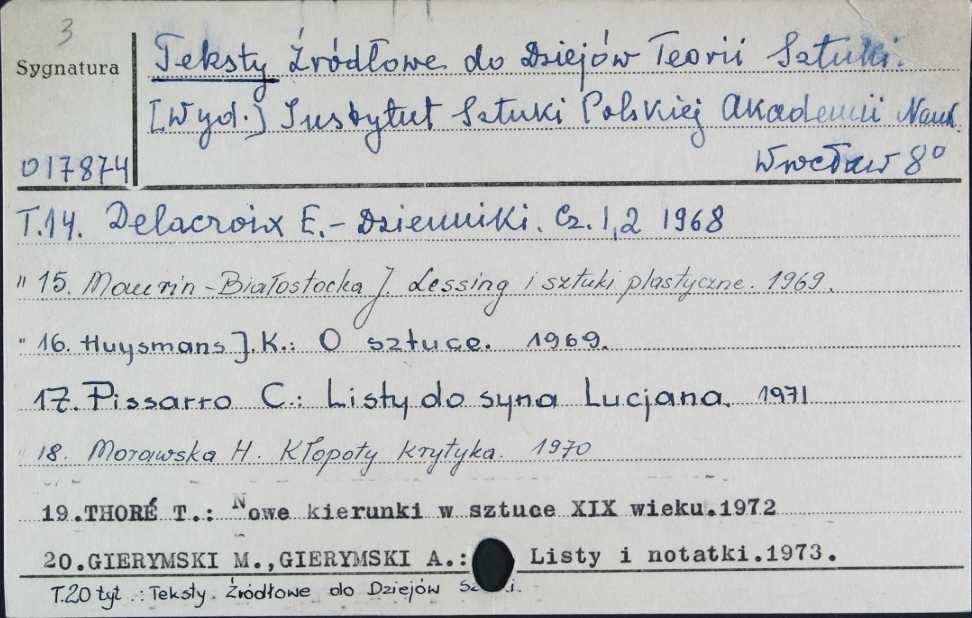 3
Sygnatura
017874
Teksty Źródłowe do Dziejów Teorii Sztuki.
[Wyd.] Instytut Sztuki Polskiej Akademii Nauk.
Wrocław 8°
T.14. Delacroix E.- Dzienniki. Cz. 1,2 1968
" 15. Maurin-Białostocka J. Lessing i sztuki plastyczne. 1969.
" 16. Huysmans J.K.: O sztuce. 1969.
17. Pissarro C.: Listy do syna Lucjana. 1971
" 18. Morawska H. Kłopoty krytyka. 1970
19.THORÉ T.: Nowe kierunki w sztuce XIX wieku.1972
20.GIERYMSKI M.,GIERYMSKI A.: Listy i notatki.1973.
T.20 tyt.: Teksty. Źródłowe do Dziejów